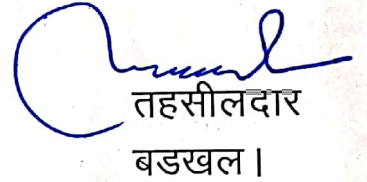 तहसीलदार
बडखल।